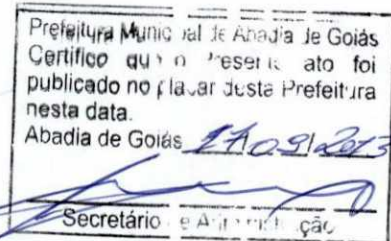 Prefeitura Munic al de Abadia de Goiás
Certifico que o resente ato foi
publicado no placar desta Prefeitura
nesta data.
Abadia de Goiás 17/09/2013
Secretário e A ção